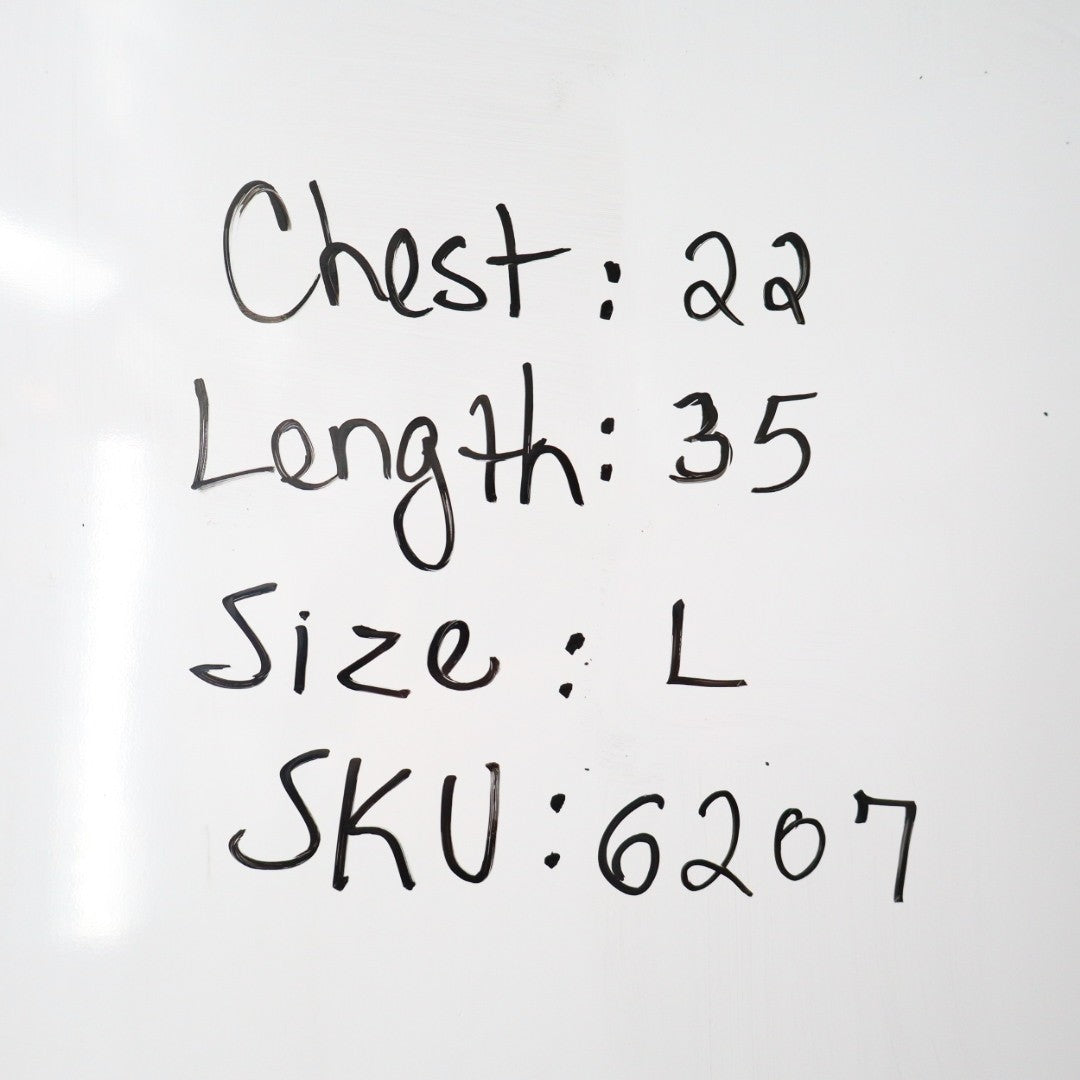 Chest: 22
Length: 35
Size: L
SKU: 6207